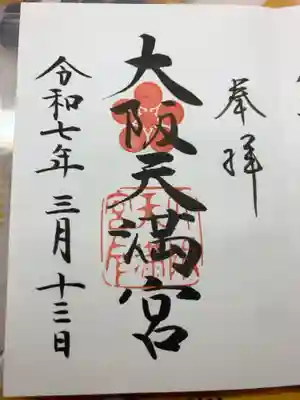 奉拝
大阪天満宮
令和七年三月十三日